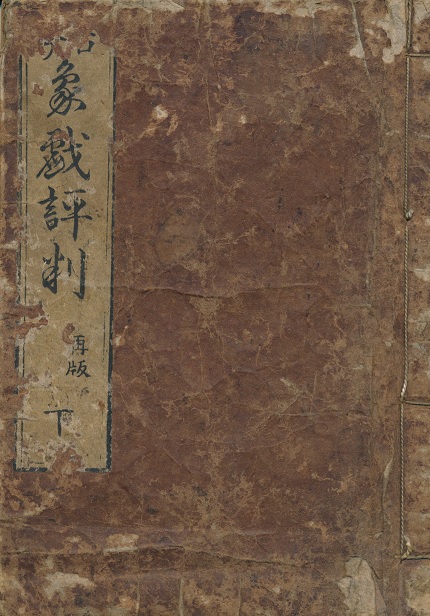 象戯評判
再版
下